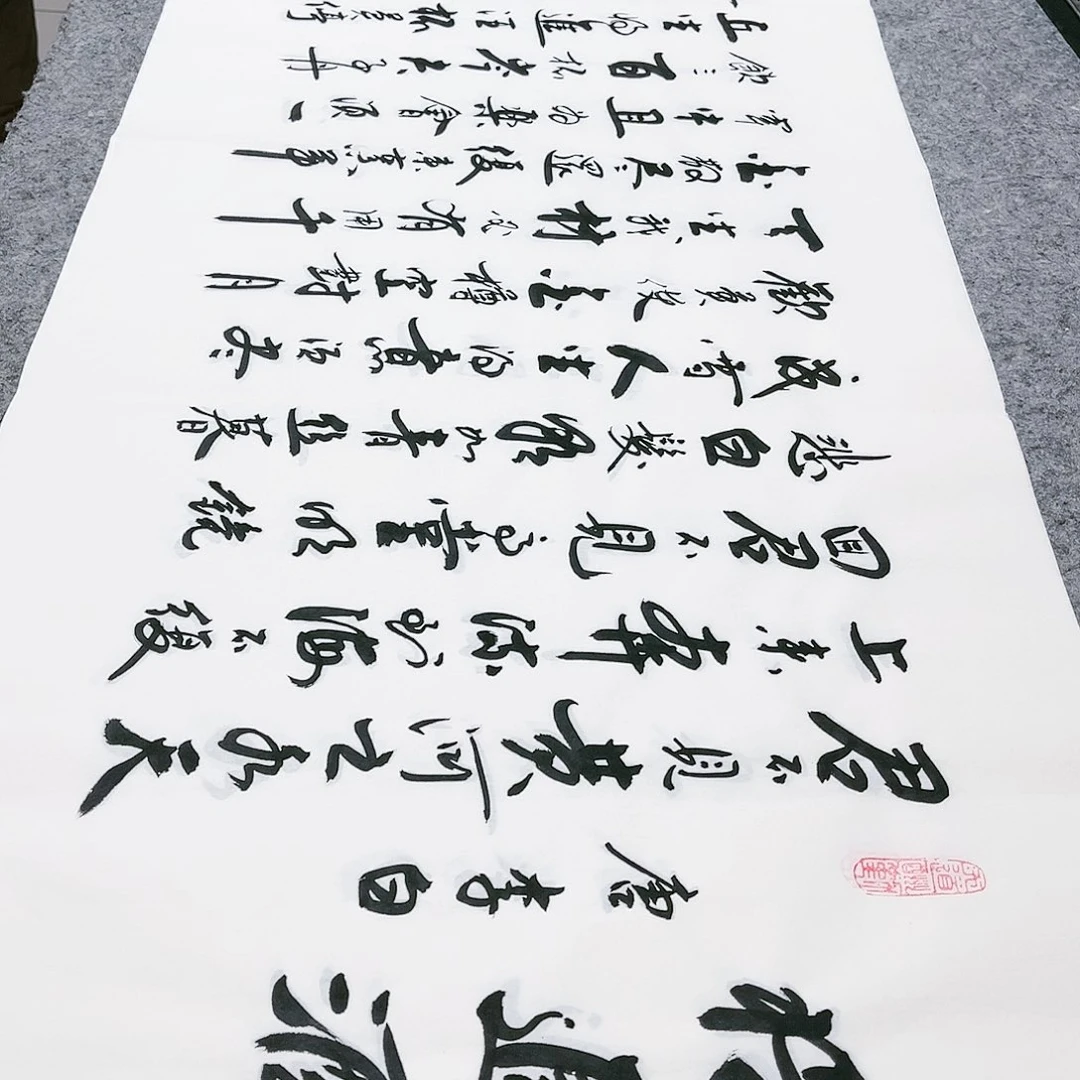 将進酒
唐李白
君不見黃河之水天
上来奔流到海不復
回君不見高堂明鏡
悲白髮朝如青丝暮
成雪人生得意须尽
歡莫使金樽空對月
天生我材必有用千
金散尽還復来烹羊
宰牛且为樂會須一
飲三百杯岑夫子丹
丘生将進酒杯莫停